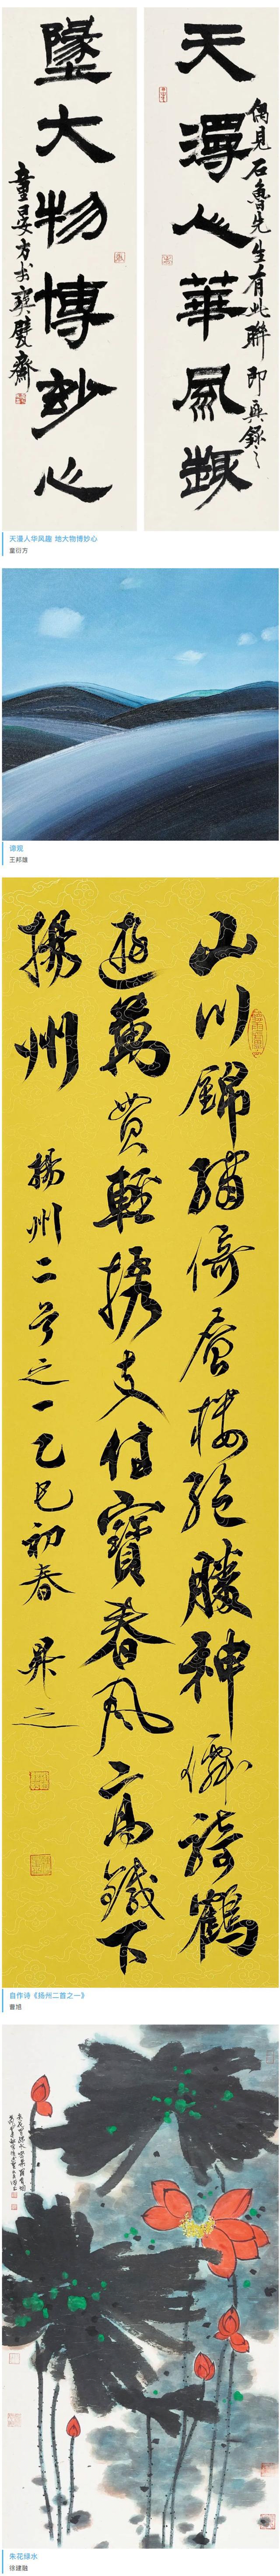 天人華風趣
偶見石魯先生有此聯即興錄之
墬大物博妙心
童晏方書寶甓齋
天人华风趣 地大物博妙心
童衍方
王邦雄
山川錦繡倚層樓絕勝神僊騎鶴
遊萬貫輕攜支付寶春風高鐵下
揚州
揚州二首之一乙巳初春昇之
自作诗《扬州二首之一》
曹旭
朱花绿水
徐建融